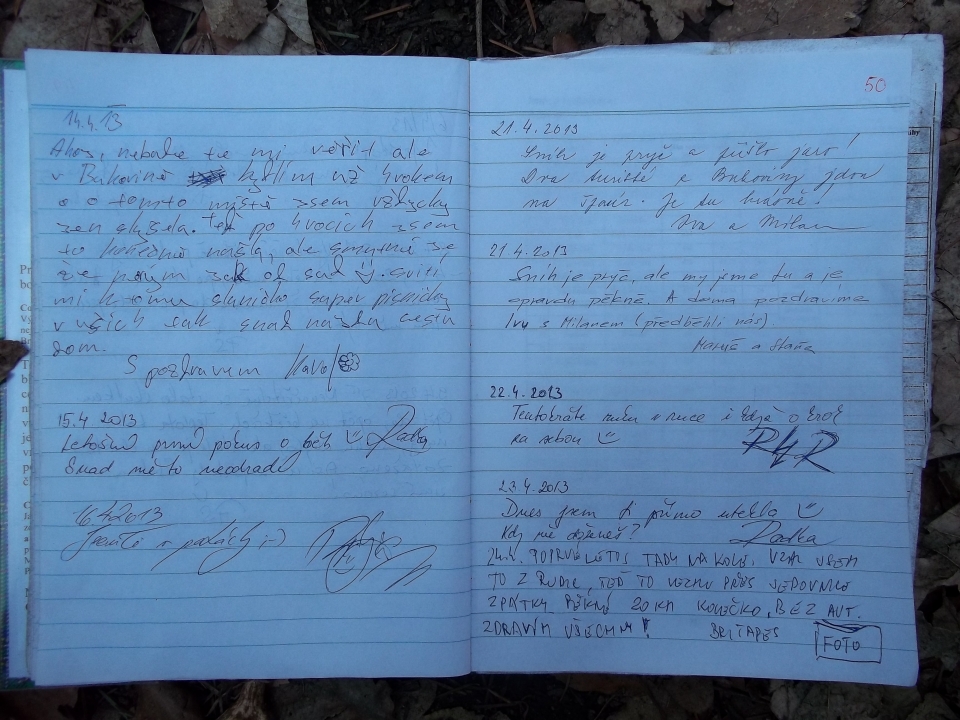 14.4.13
Ahoj, nebude se mi věřit ale
v Bukovině bydlím už 4 rokem
a o tomto místě jsem vždycky
jen slyšela. Teď po 4 rocích jsem
to konečně našla, ale smutné je
že pouze
mi k tomu sluníčko super písničky
v uších tak snad najdu cestu
dom.
S pozdravem
15.4 2013
Letošní první pokus o běh Radka
Snad mě to neodradí
16.4.2013
21.4.2013
Sníh je pryč a přišlo jaro!
Dva turisté z Bukoviny jdou
na špacír. Je tu krásně!
Iva a Milan
21.4.2013
Sníh je pryč, ale my jsme tu a je
opravdu pěkně. A doma pozdravíme
Ivu s Milanem (předběhli nás).
Maruš a Staňa
22.4.2013
Tentokráte ruku v ruce i když o krok
za sebou
23.4.2013
Dnes jsem ti přímo utekla
Kdy mě doženeš? Radka
24.4. POPRVÉ LETOS TADY NA KOLE, VZAL JSEM
TO Z RUDIC, TEĎ TO VEZMU PŘES JEDOVNICE
ZPÁTKY. PĚKNÉ 20 KM KOLEČKO, BEZ AUT.
ZDRAVÍM VŠECHNY!
FOTO
50